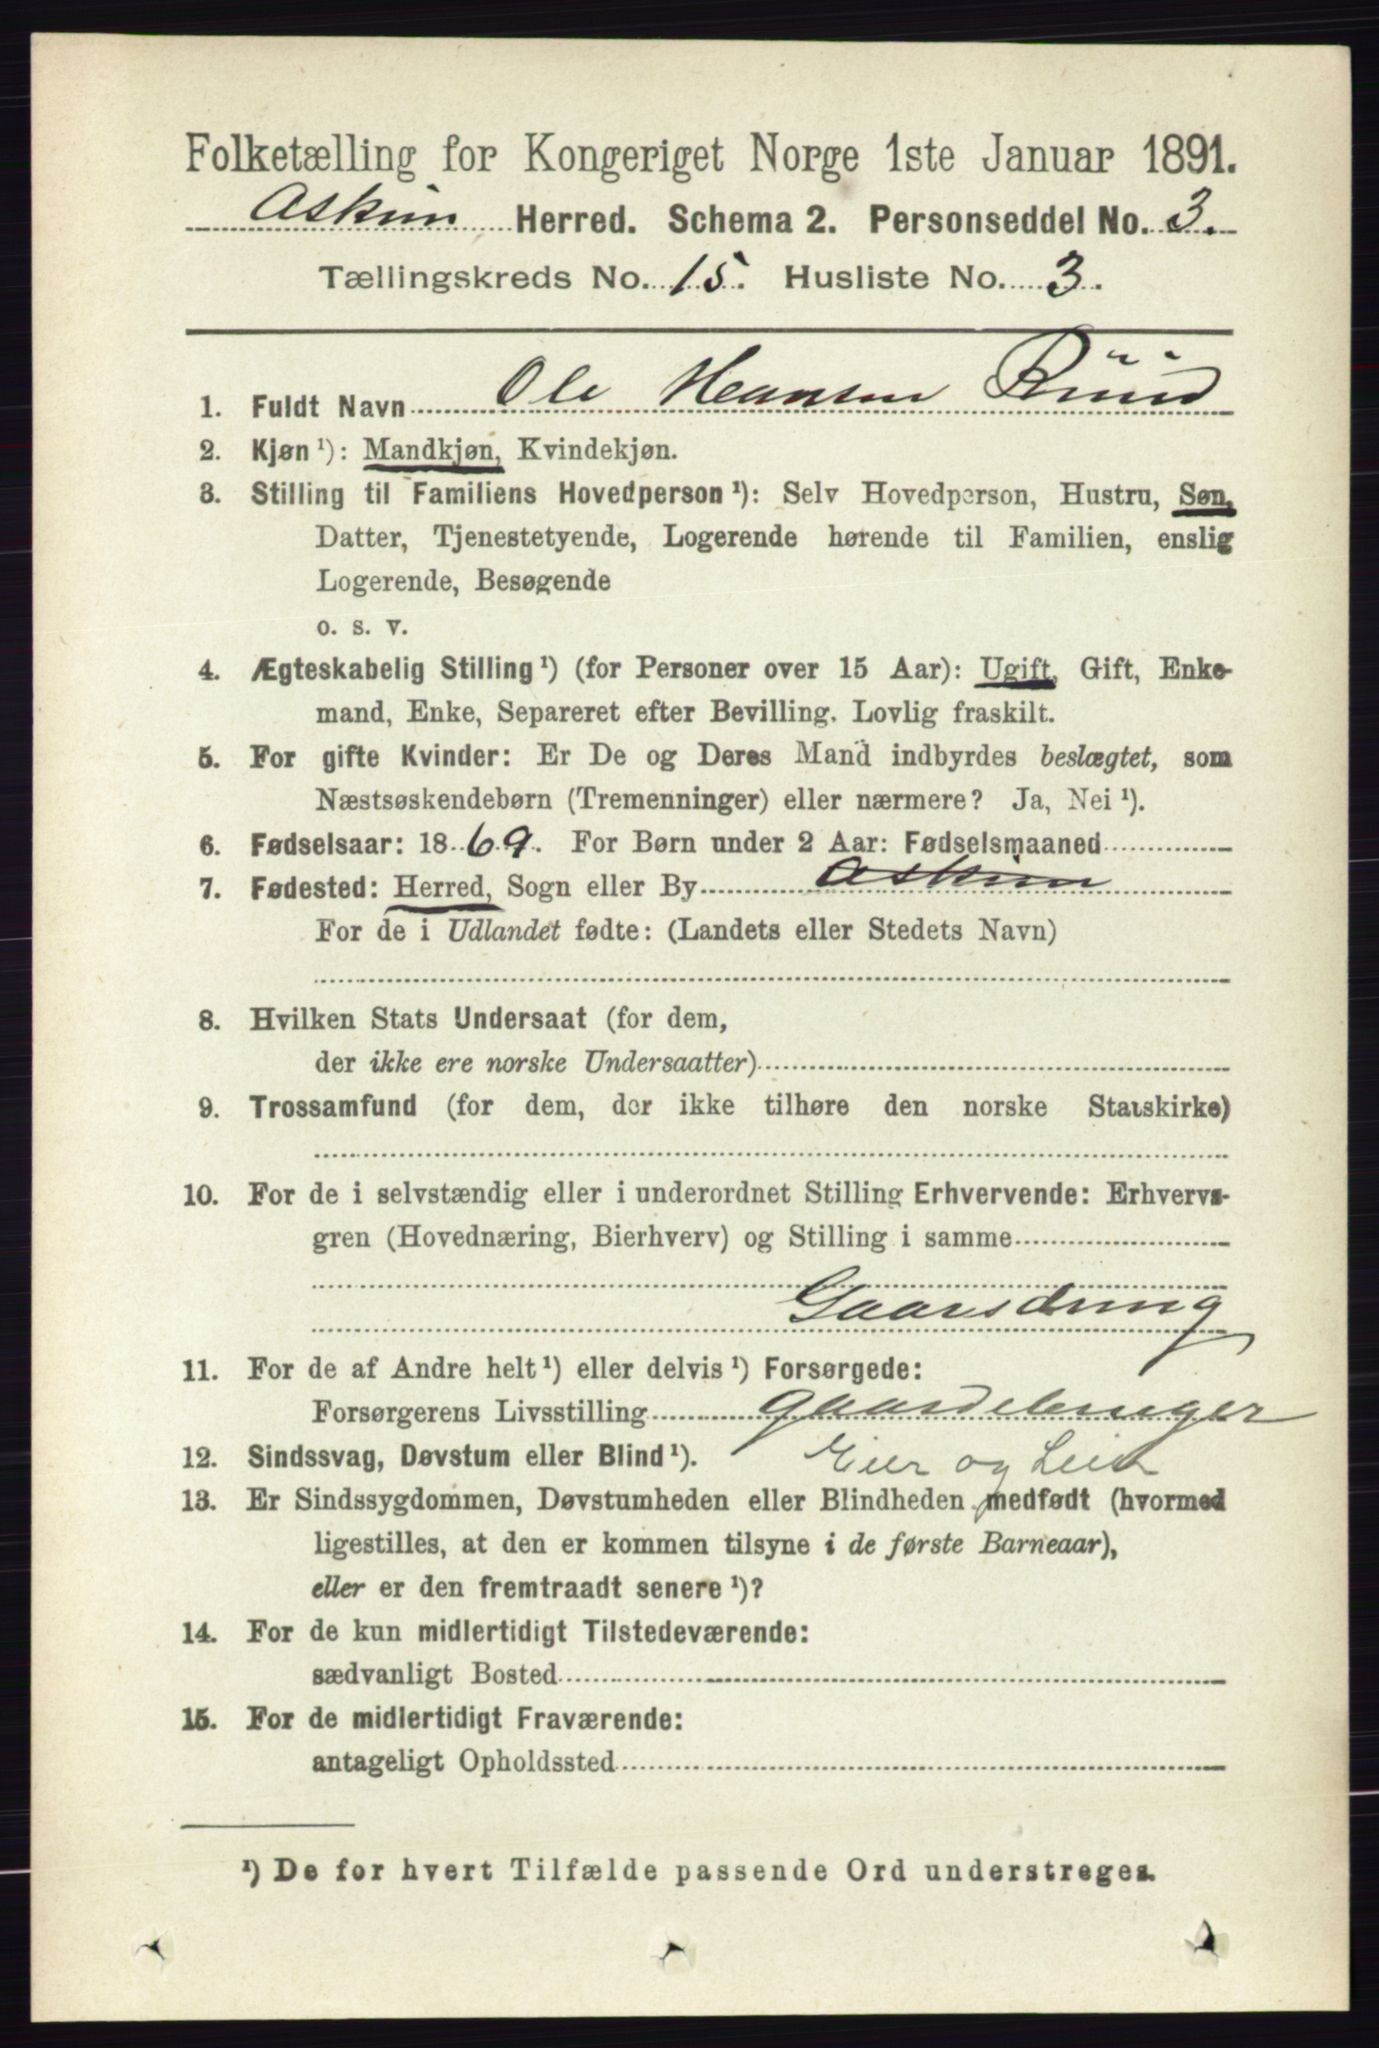 Folketælling for Kongeriget Norge 1ste Januar 1891.
Askim Herred. Schema 2. Personseddel No. 3.
Tællingskreds No. 15. Husliste No. 3.
1. Fuldt Navn Ole Hansen Ruud
2. Kjøn ¹): Mandkjøn, Kvindekjøn.
3. Stilling til Familiens Hovedperson ¹): Selv Hovedperson, Hustru, Søn,
Datter, Tjenestetyende, Logerende hørende til Familien, enslig
Logerende, Besøgende
o. s. v.
4. Ægteskabelig Stilling ¹) (for Personer over 15 Aar): Ugift, Gift, Enke-
mand, Enke, Separeret efter Bevilling. Lovlig fraskilt.
5. For gifte Kvinder: Er De og Deres Mand indbyrdes beslægtet, som
Næstsøskendebørn (Tremenninger) eller nærmere? Ja, Nei ¹).
6. Fødselsaar: 1869. For Børn under 2 Aar: Fødselsmaaned
7. Fødested: Herred, Sogn eller By Askim
For de i Udlandet fødte: (Landets eller Stedets Navn)
8. Hvilken Stats Undersaat (for dem,
der ikke ere norske Undersaatter)
9. Trossamfund (for dem, der ikke tilhøre den norske Statskirke)
10. For de i selvstændig eller i underordnet Stilling Erhvervende: Erhvervs-
gren (Hovednæring, Bierhverv) og Stilling i samme
Gaarsdreng
11. For de af Andre helt ¹) eller delvis ¹) Forsørgede:
Forsørgerens Livsstilling gaardebruger
12. Sindssvag, Døvstum eller Blind ¹). Eier og
13. Er Sindssygdommen, Døvstumheden eller Blindheden medfødt (hvormed
ligestilles, at den er kommen tilsyne i de første Barneaar),
eller er den fremtraadt senere ¹)?
14. For de kun midlertidigt Tilstedeværende:
sædvanligt Bosted
15. For de midlertidigt Fraværende:
antageligt Opholdssted
¹) De for hvert Tilfælde passende Ord understreges.